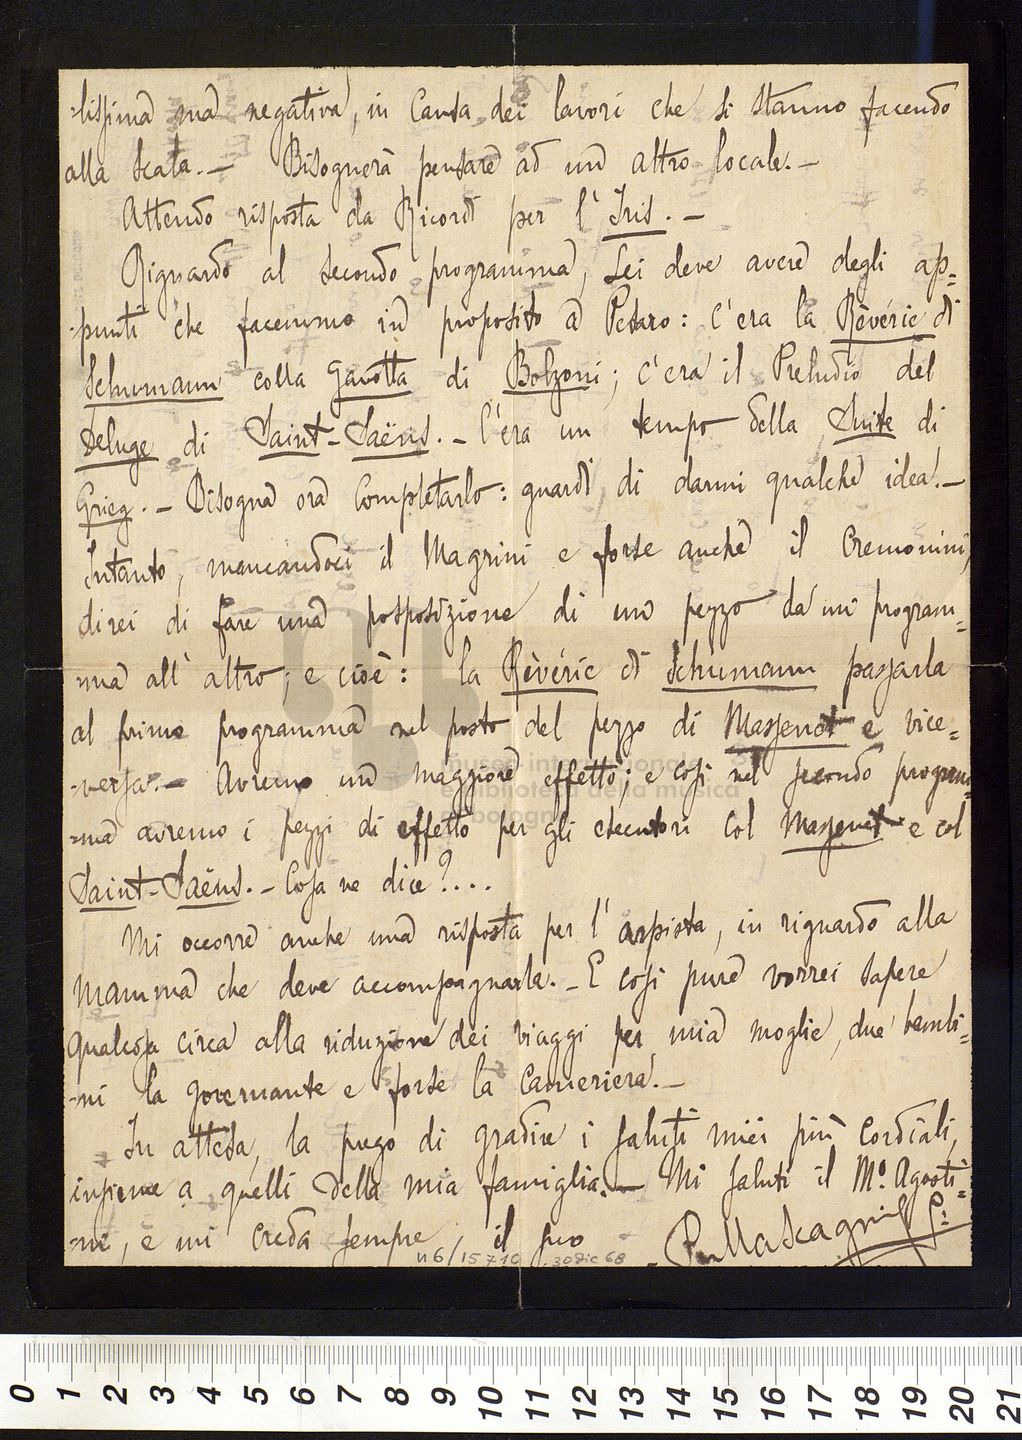 -lissima ma negativa, in causa dei lavori che si stanno facendo
alla Scala. — Bisognerà pensare ad un altro locale. —
Attendo risposta da Ricordi per l'Iris. —
Riguardo al secondo programma, Lei deve avere degli ap=
-punti che facemmo in proposito a Pesaro: c'era la Rêvérie di
Schumann colla Gavotta di Bolzoni; c'era il Preludio del
Deluge di Saint-Saëns. — C'era un tempo della Suite di
Grieg. — Bisogna ora completarlo: guardi di darmi qualche idea. —
Intanto, mancandoci il Magrini e forse anche il Cremonini,
direi di fare una posposizione di un pezzo da un program=
ma all'altro; e cioè: la Rêvérie di Schumann passarla
al primo programma nel posto del pezzo di Massenet e vice=
-versa. — Avremo un maggiore effetto; e così nel secondo program=
=ma avremo i pezzi di effetto per gli esecutori col Massenet e col
Saint-Saëns. — Cosa ne dice?....
Mi occorre anche una risposta per l'arpista, in riguardo alla
mamma che deve accompagnarla. — E così pure vorrei sapere
qualcosa circa alla riduzione dei viaggi per mia moglie, due bambi=
-ni la governante e forse la cameriera. —
In attesa, la prego di gradire i saluti miei più cordiali,
insieme a quelli della mia famiglia. — Mi saluti il Mº. Agosti=
-ni, e mi creda sempre, il suo P. Mascagni
n6/15710 30 dic 68
museo internazionale
e biblioteca della musica
di bologna
0 1 2 3 4 5 6 7 8 9 10 11 12 13 14 15 16 17 18 19 20 21